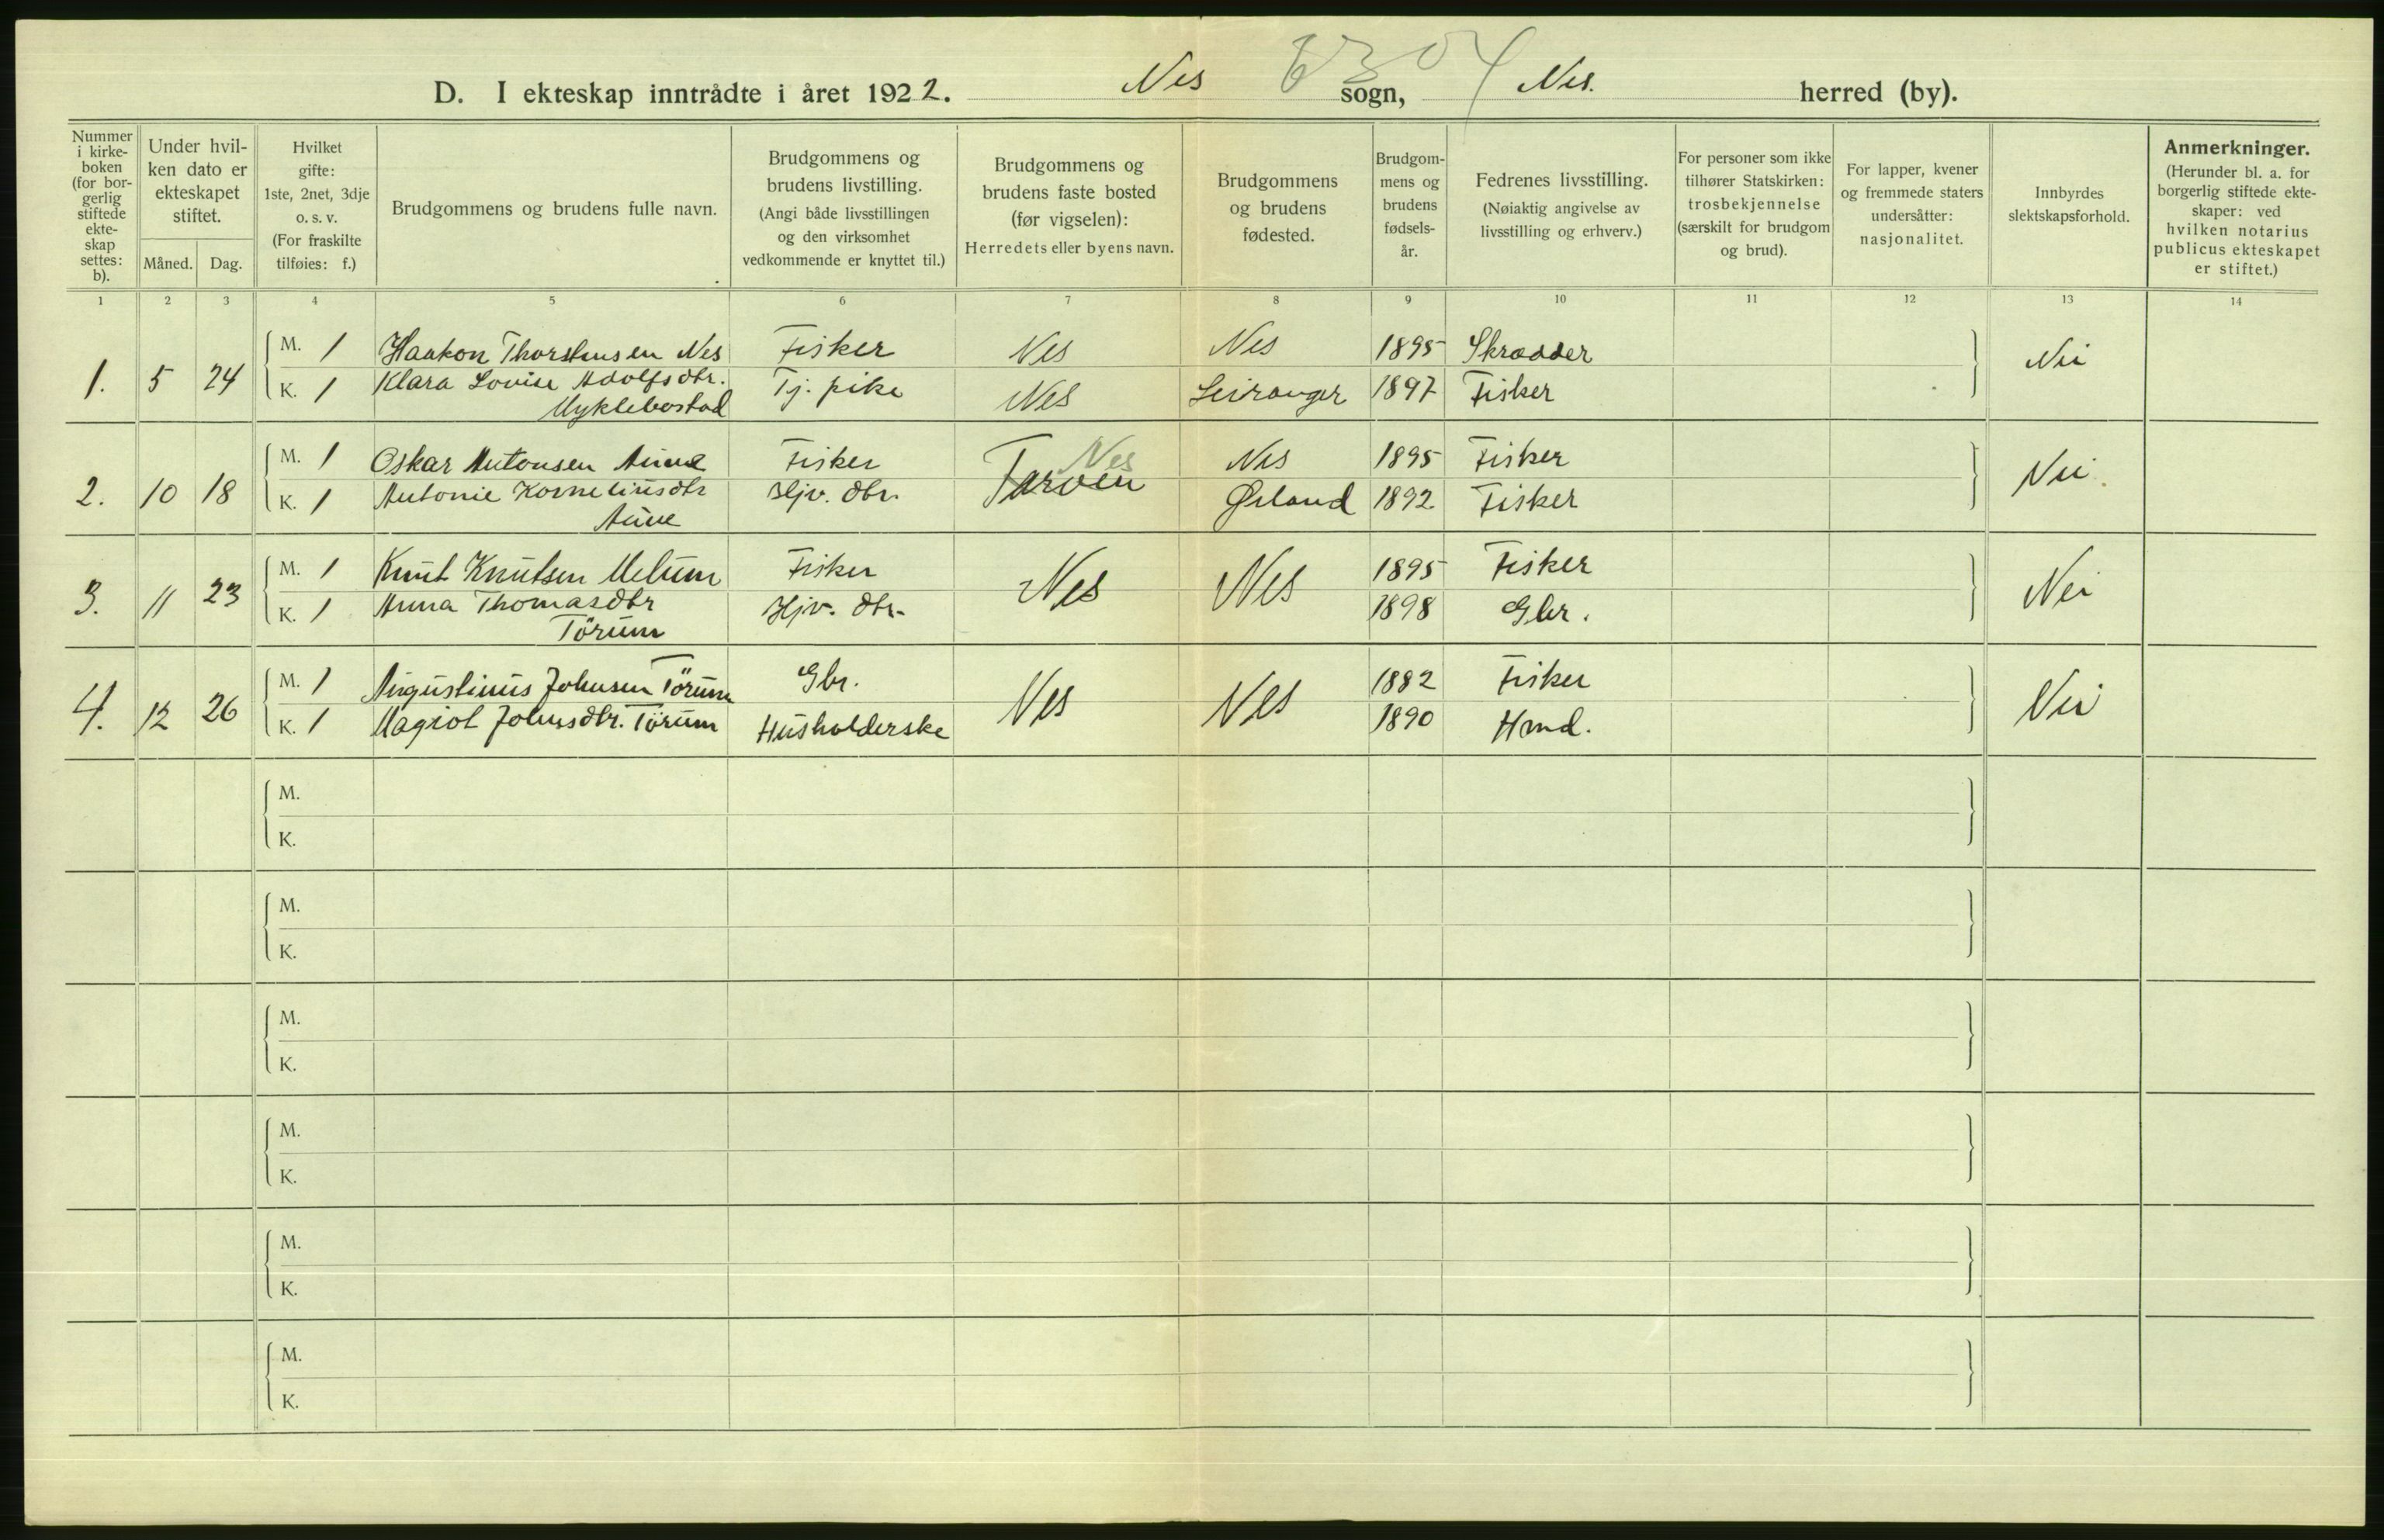 6304
D. I ekteskap inntrådte i året 1922. Nes sogn, Nes. herred (by).
Nummer i kirke- boken (for bor- gerlig stiftede ekte- skap settes: b).
Under hvil- ken dato er ekteskapet stiftet.
Måned. Dag.
Hvilket gifte: 1ste, 2net, 3dje o. s. v. (For fraskilte tilføies: f.)
Brudgommens og brudens fulle navn.
Brudgommens og brudens livstilling. (Angi både livsstillingen og den virksomhet vedkommende er knyttet til.)
Brudgommens og brudens faste bosted (før vigselen): Herredets eller byens navn.
Brudgommens og brudens fødested.
Brudgom- mens og brudens fødsels- år.
Fedrenes livsstilling. (Nøiaktig angivelse av livsstilling og erhverv.)
For personer som ikke tilhører Statskirken: trosbekjennelse (særskilt for brudgom og brud).
For lapper, kvener og fremmede staters undersåtter: nasjonalitet.
Innbyrdes slektskapsforhold.
Anmerkninger. (Herunder bl. a. for borgerlig stiftede ekte- skaper: ved hvilken notarius publicus ekteskapet er stiftet.)
1 2 3 4 5 6 7 8 9 10 11 12 13 14
M. 1 Haakon Thorstensen Nes Fisker Nes Nes 1895 Skrædder
1. 5 24 Nei
K. 1 Klara Lovise Adolfsdtr. Tj. pike Nes Leiranger 1897 Fisker
Myklebostad
M. 1 Oskar Antonsen Aune Fisker Nes Nes 1895 Fisker
2. 10 18 Tarven Nei
K. 1 Antonie Korneliusdtr Hjv. dtr. Ørland 1892 Fisker
Aune
M. 1 Knut Knutsen Melum Fisker 1895 Fisker
3. 11 23 Nes Nes Nei
K. 1 Anna Thomasdtr Hjv. dtr. 1898 Gbr.
Törum
M. 1 Augustinus Johnsen Törum Gbr. 1882 Fisker
4. 12 26 Nes Nes Nei
K. 1 Magiot Johnsdtr. Törum Husholderske 1890 Hmd.
M.
K.
M.
K.
M.
K.
M.
K.
M.
K.
M.
K.